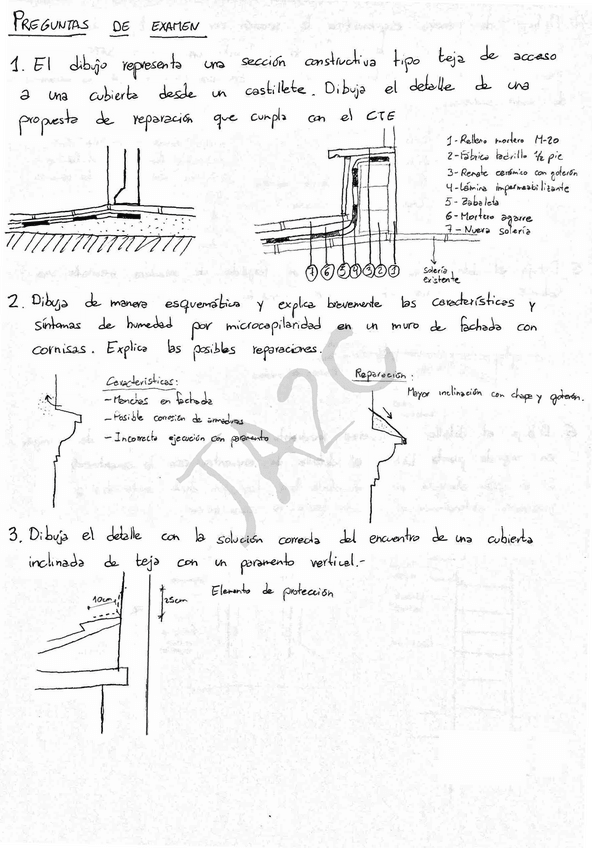 PREGUNTAS DE EXAMEN
1. El dibujo representa una sección constructiva tipo teja de acceso
a una cubierta desde un castillete. Dibuja el detalle de una
propuesta de reparación que cumpla con el CTE
1- Relleno mortero M-20
2- Fábrica ladrillo 1/2 pie
3- Remate cerámico con goterón
4- Lámina impermeabilizante
5- Zabaleta
6- Mortero agarre
7- Nueva solería
7 6 5 4 3 2 1
solería
existente
2. Dibuja de manera esquemática y explica brevemente las características y
síntomas de humedad por microcapilaridad en un muro de fachada con
cornisas. Explica las posibles reparaciones.
Características:
- Manchas en fachada
- Posible corrosión de armaduras
- Incorrecta ejecución con paramento
Reparación:
Mayor inclinación con chapa y goterón.
JA2C
3. Dibuja el detalle con la solución correcta del encuentro de una cubierta
inclinada de teja con un paramento vertical.-
10cm
25cm
Elemento de protección